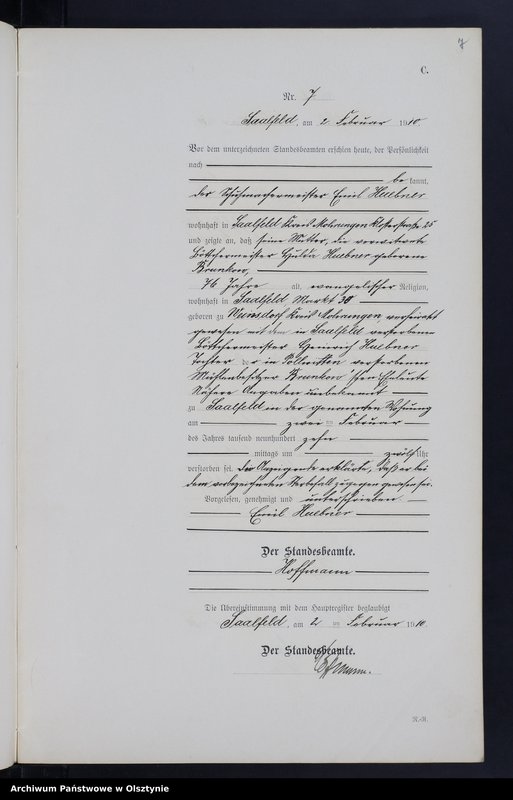 7
C.
Nr. 7
Saalfeld, am 2 Februar 1910
Vor dem unterzeichneten Standesbeamten erschien heute, der Persönlichkeit
nach
bekannt,
der Schuhmachermeister Emil Huebner
wohnhaft in Saalfeld Kreis Mohrungen Klosterstraße 25
und zeigte an, daß seine Mutter, die verwitwete
Böttchermeister Hulda Huebner geborene
Brunkow,
76 Jahre alt, evangelischer Religion,
wohnhaft in Saalfeld Markt 30
geboren zu Kreis Mohrungen verheiratet
gewesen mit dem in Saalfeld verstorbenen
Böttchermeister Heinrich Huebner
Tochter der in verstorbenen
Mühlenbesitzer Brunkow'schen Eheleute
Nähere Angaben unbekannt
zu Saalfeld in der genannten Wohnung
am zwei ten Februar
des Jahres tausend neunhundert zehn
mittags um zwölf Uhr
verstorben sei. Der Anzeigende erklärte, daß er bei
dem vorbezeichneten Sterbefall zugegen gewesen sei.
Vorgelesen, genehmigt und unterschrieben
Emil Huebner
Der Standesbeamte.
Hoffmann
Die Übereinstimmung mit dem Hauptregister beglaubigt
Saalfeld, am 2 ten Februar 1910
Der Standesbeamte.
Archiwum Państwowe w Olsztynie